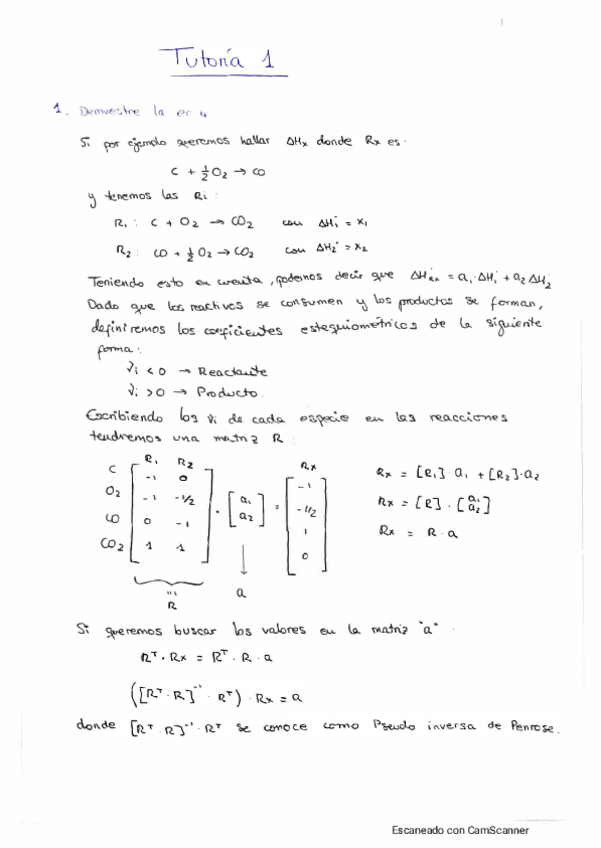 Tutoría 1
1. Demuestre la ec 4
Si por ejemplo queremos hallar ΔHx donde Rx es:
C + 1/2 O2 → CO
y tenemos las Ri:
R1: C + O2 → CO2 con ΔH1° = x1
R2: CO + 1/2 O2 → CO2 con ΔH2° = x2
Teniendo esto en cuenta, podemos decir que ΔH°Rx = a1·ΔH1 + a2 ΔH2
Dado que los reactivos se consumen y los productos se forman,
definiremos los coeficientes estequiométricos de la siguiente
forma:
νi < 0 → Reactante
νi > 0 → Producto.
Escribiendo los νi de cada especie en las reacciones
tendremos una matriz R:
R1 R2 Rx
C -1 0 -1 Rx = [R1]·a1 + [R2]·a2
O2 -1 -1/2 · [a1 a2] = -1/2 Rx = [R]·[a1 a2]
CO 0 -1 1 Rx = R·a
CO2 1 1 0
R a
Si queremos buscar los valores en la matriz "a".
R^T · Rx = R^T · R · a
([R^T · R]^-1 · R^T) · Rx = a
donde [R^T · R]^-1 · R^T se conoce como Pseudo inversa de Penrose.
Escaneado con CamScanner